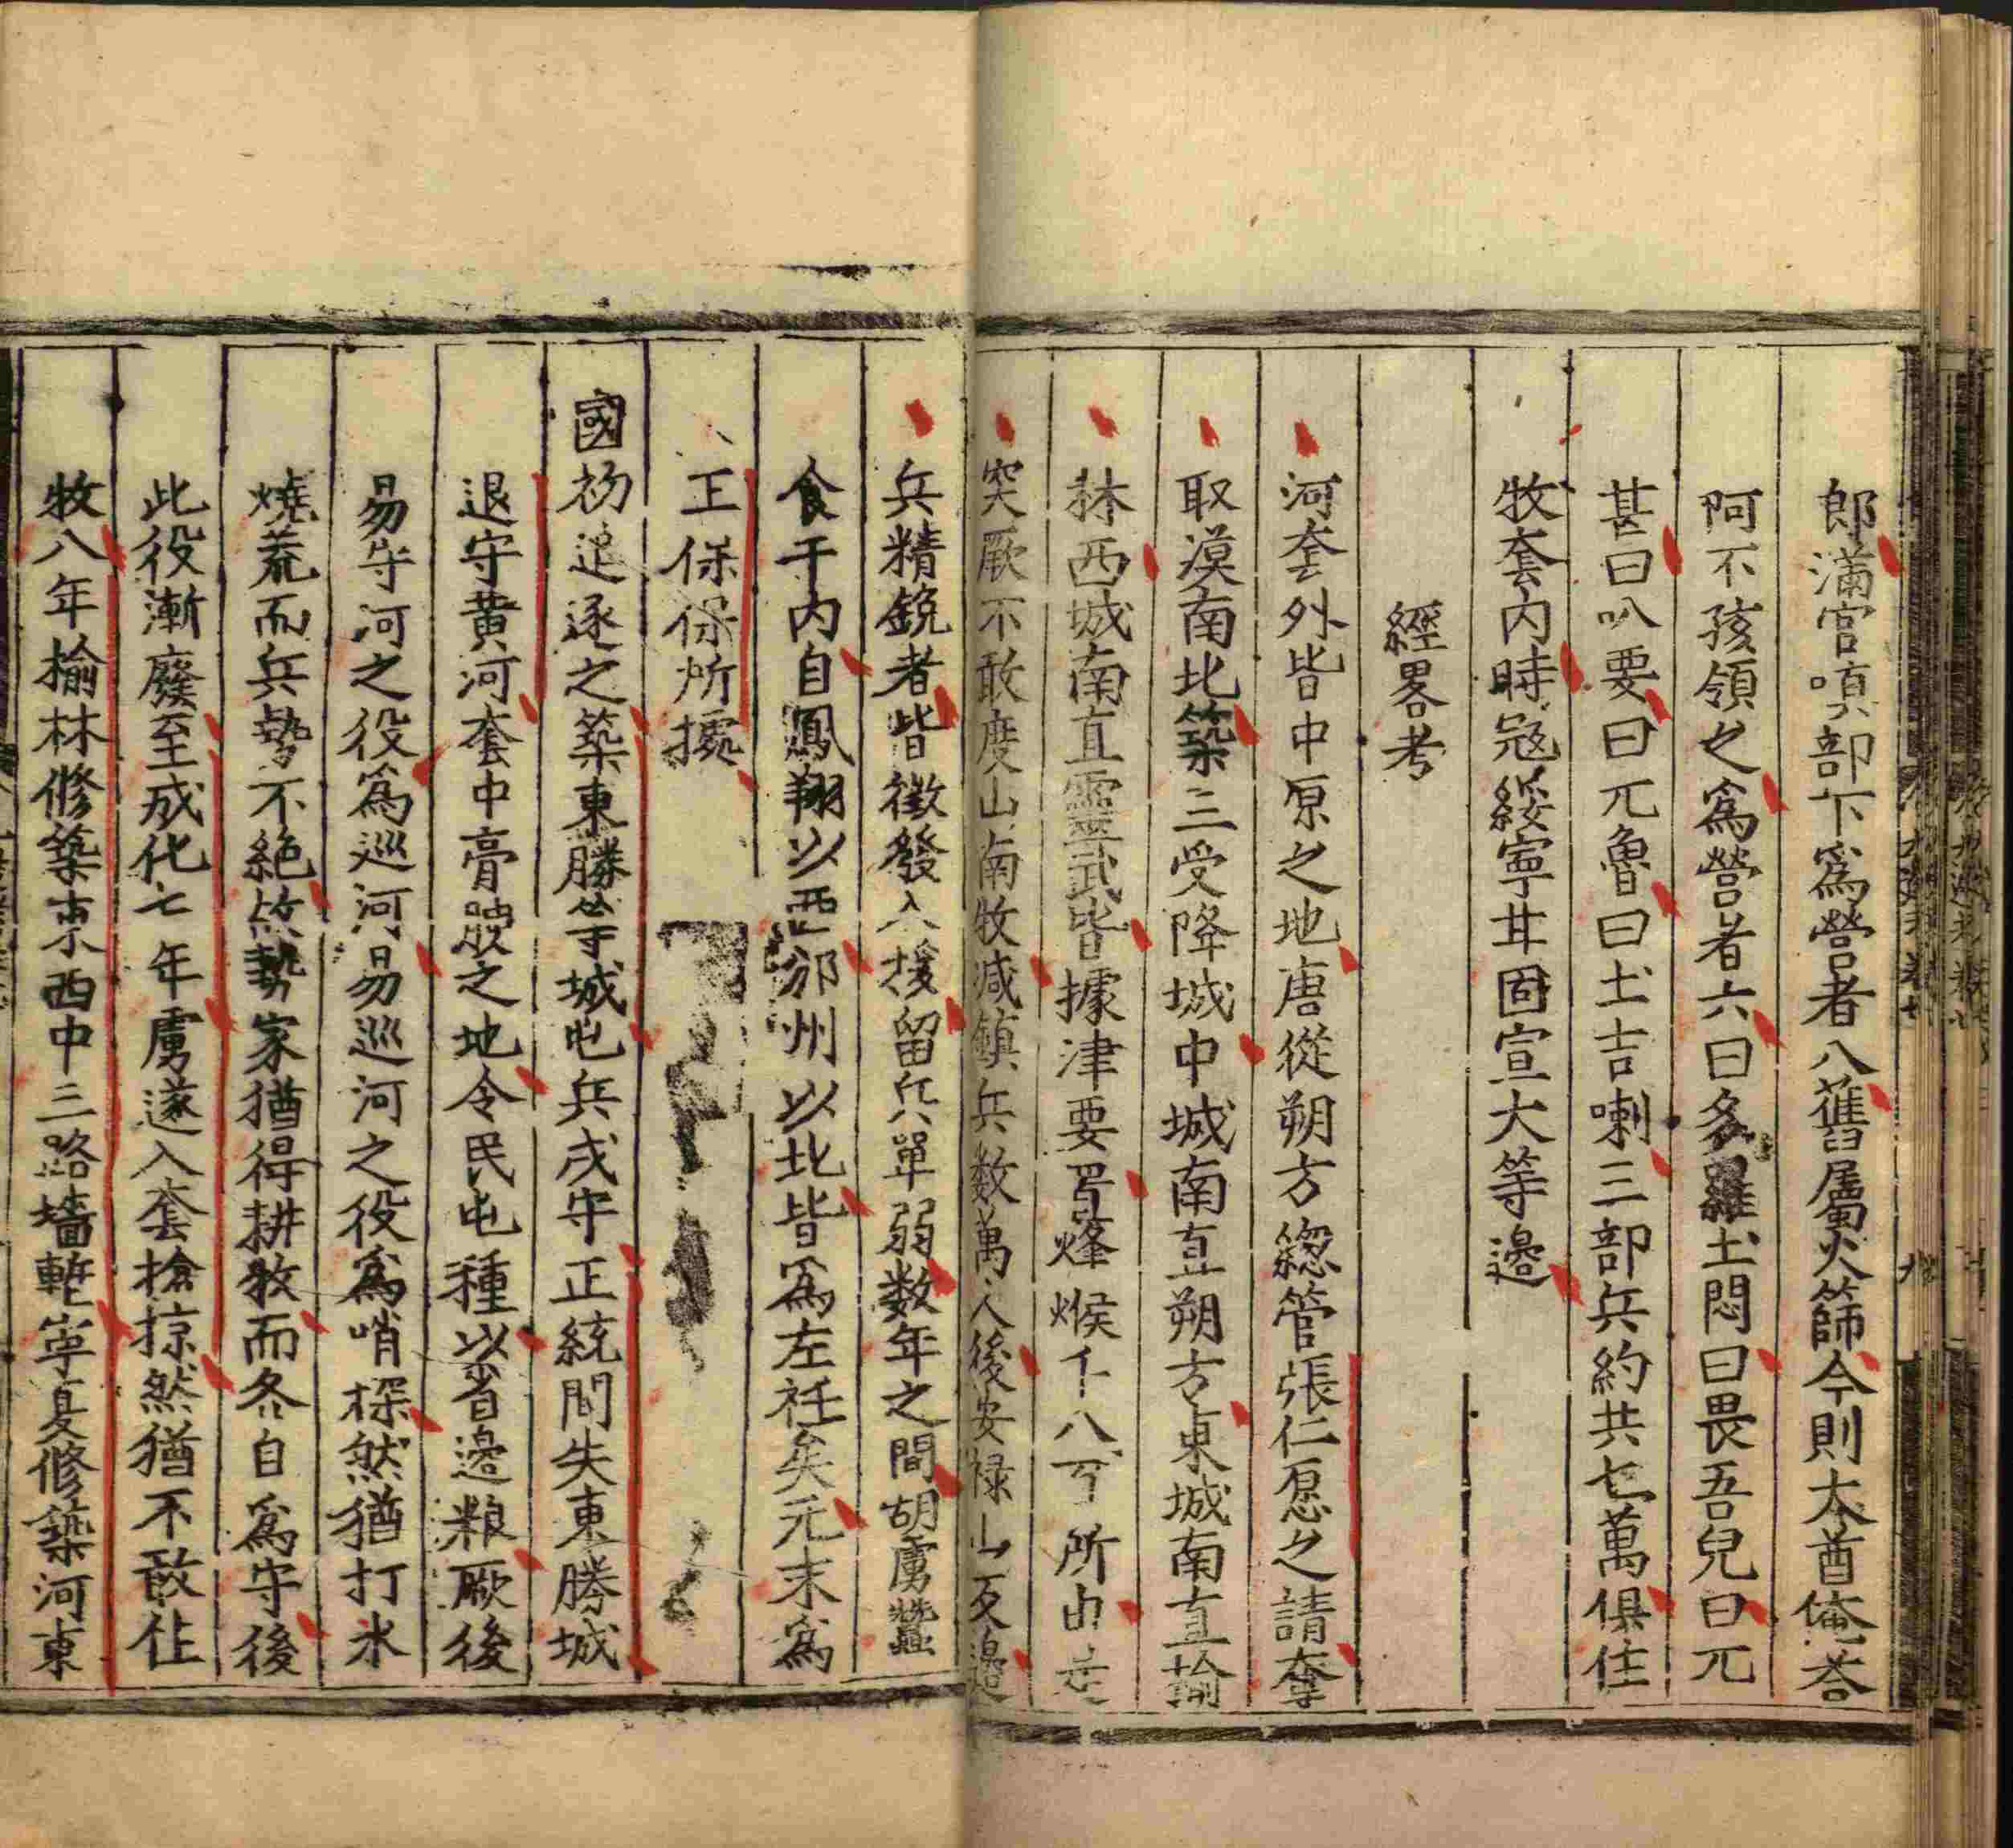 郎滿官嗔部下爲營者八舊屬火篩今則大酋俺荅
阿不孩領之爲營者六曰多羅土悶曰畏吾兒曰兀
甚曰叭要曰兀魯曰土吉喇三部兵約共七萬俱住
牧套内時寇綏寧甘固宣大等邊
經畧考
河套外皆中原之地唐從朔方緫管張仁愿之請奪
取漠南北築三受降城中城南直朔方東城南直榆
林西城南直靈武皆據津要置烽堠千八百所由是
突厥不敢度山南牧减鎮兵数萬人後安禄山反邉
兵精銳者皆徵發入援留兵單弱数年之間胡虜蠶
食于内自鳳翔以西邠州以北皆爲左衽矣元末爲
王保保所據
國初追逐之築東勝等城屯兵戍守正統間失東勝城
退守黄河套中膏腴之地令民屯種以省邉粮厥後
易守河之役爲巡河易巡河之役爲哨探然猶打水
燒荒而兵勢不絶故勢家猶得耕牧而各自爲守後
此役漸廢至成化七年虜遂入套搶掠然猶不敢住
牧八年榆林修築東西中三路墻塹寧夏修築河東